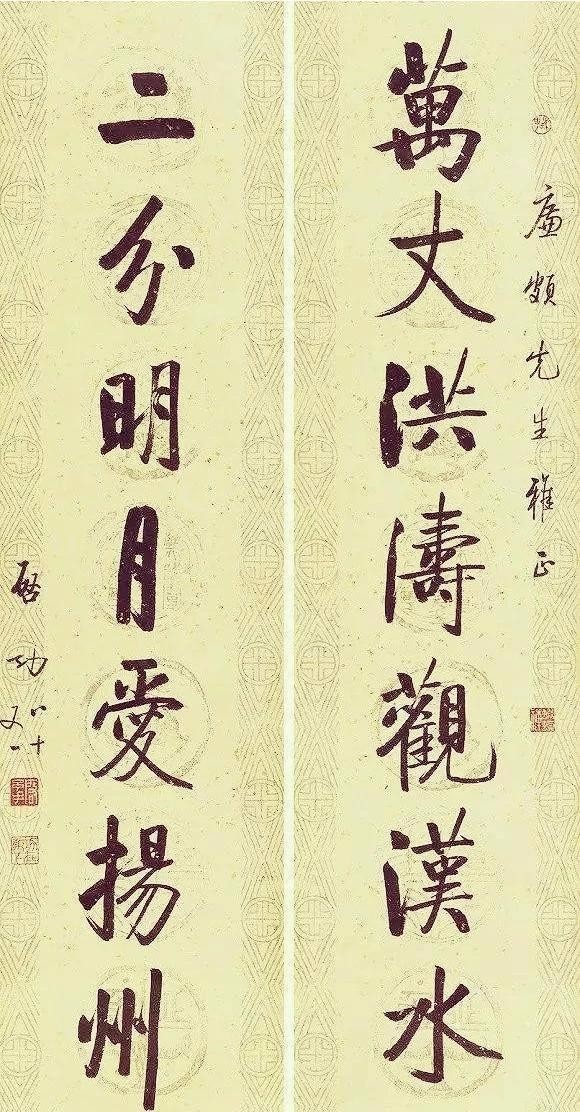 廉頗先生雅正
萬丈洪濤觀漢水
二分明月愛揚州
啟功
八十又一